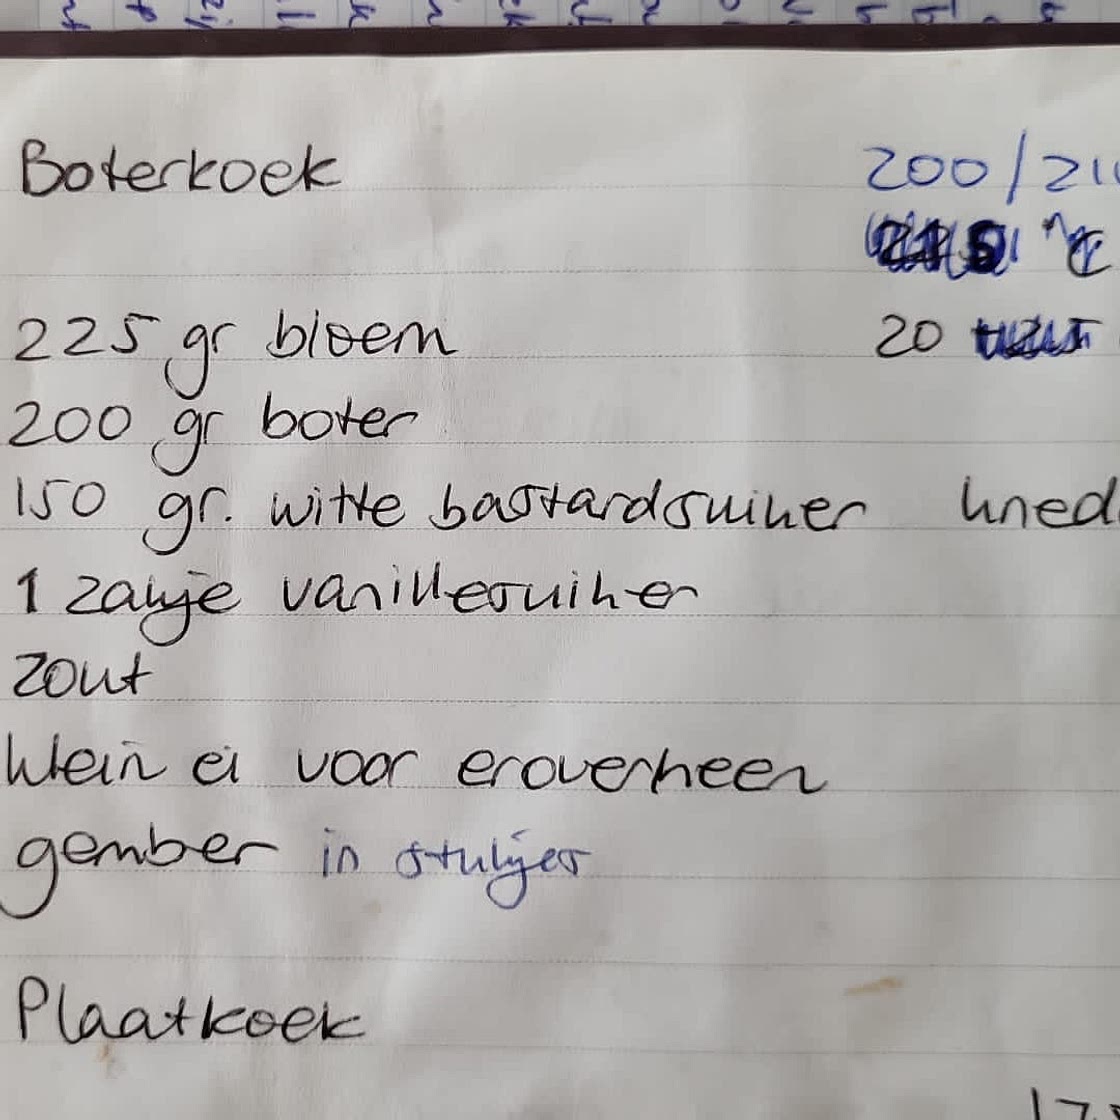 Boterkoek 200/210
°C
225 gr bloem 20
200 gr boter
150 gr. witte bastardsuiker kned
1 zakje vanillesuiker
zout
klein ei voor eroverheen
gember in stukjes
Plaatkoek